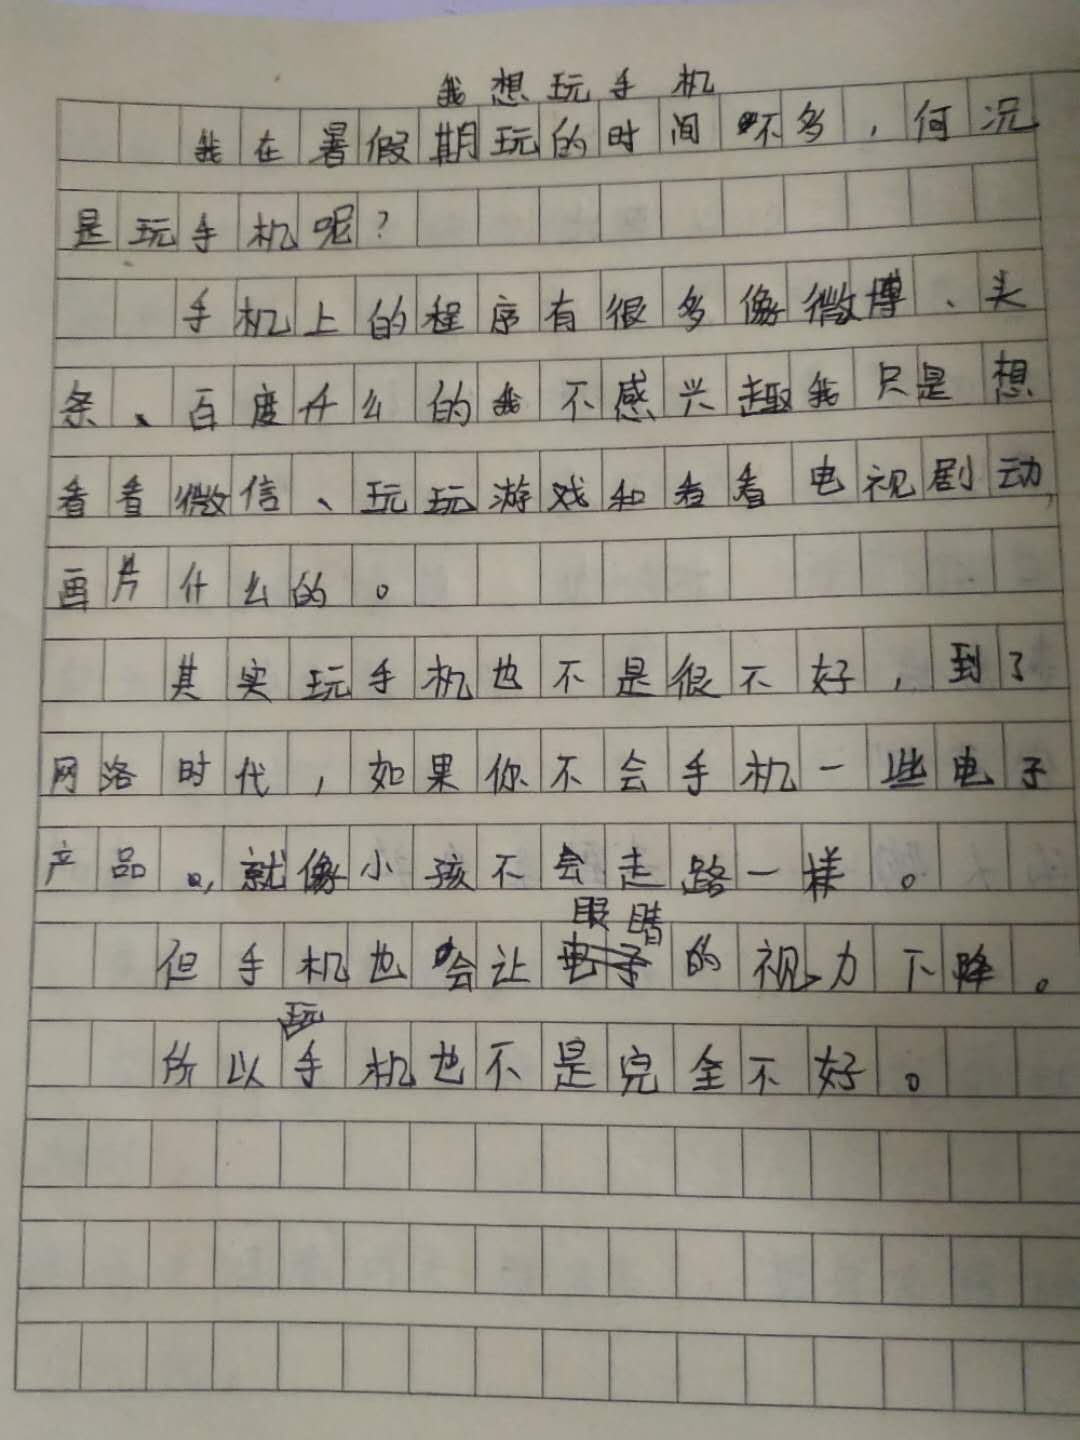 我想玩手机
我在暑假期玩的时间不多，何况
是玩手机呢？
手机上的程序有很多像微博、头
条、百度什么的我不感兴趣我只是想
看看微信、玩玩游戏和看看电视剧动
画片什么的。
其实玩手机也不是很不好，到了
网洛时代，如果你不会手机一些电子
产品。，就像小孩不会走路一样。
但手机也会让眼睛的视力下降。
所以玩手机也不是完全不好。